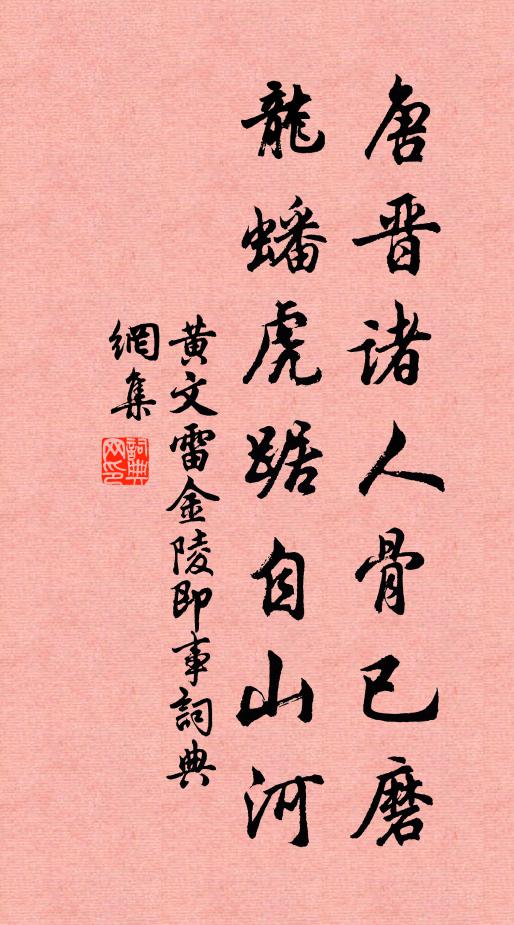 唐晋诸人骨已磨
龍蟠虎踞自山河
黄文雷金陵即事詞典
網集
詞典網印